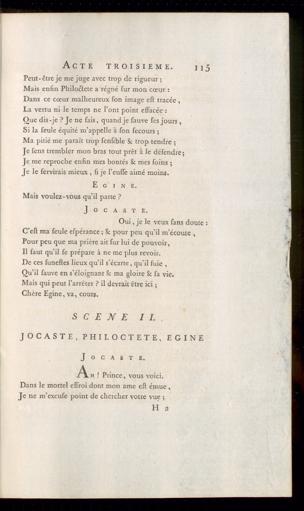 ACTE TROISIEME. 115
Peut-être je me juge avec trop de rigueur ;
Mais enfin Philoctete a régné sur mon cœur :
Dans ce cœur malheureux son image est tracée,
La vertu ni le temps ne l'ont point effacée :
Que dis-je ? Je ne sais, quand je sauve ses jours,
Si la seule équité m'appelle à son secours ;
Ma pitié me paraît trop sensible & trop tendre ;
Je sens trembler mon bras tout prêt à le défendre ;
Je me reproche enfin mes bontés & mes soins ;
Je le servirais mieux, si je l'eusse aimé moins.
EGINE.
Mais voulez-vous qu'il parte ?
JOCASTE.
Oui, je le veux sans doute :
C'est ma seule espérance ; & pour peu qu'il m'écoute,
Pour peu que ma prière ait sur lui de pouvoir,
Il faut qu'il se prépare à ne me plus revoir.
De ces funestes lieux qu'il s'écarte, qu'il fuie,
Qu'il sauve en s'éloignant & ma gloire & sa vie.
Mais qui peut l'arrêter ? il devrait être ici ;
Chère Egine, va, cours.
SCENE II.
JOCASTE, PHILOCTETE, EGINE
JOCASTE.
AH ! Prince, vous voici.
Dans le mortel effroi dont mon ame est émue,
Je ne m'excuse point de chercher votre vue ;
H 2